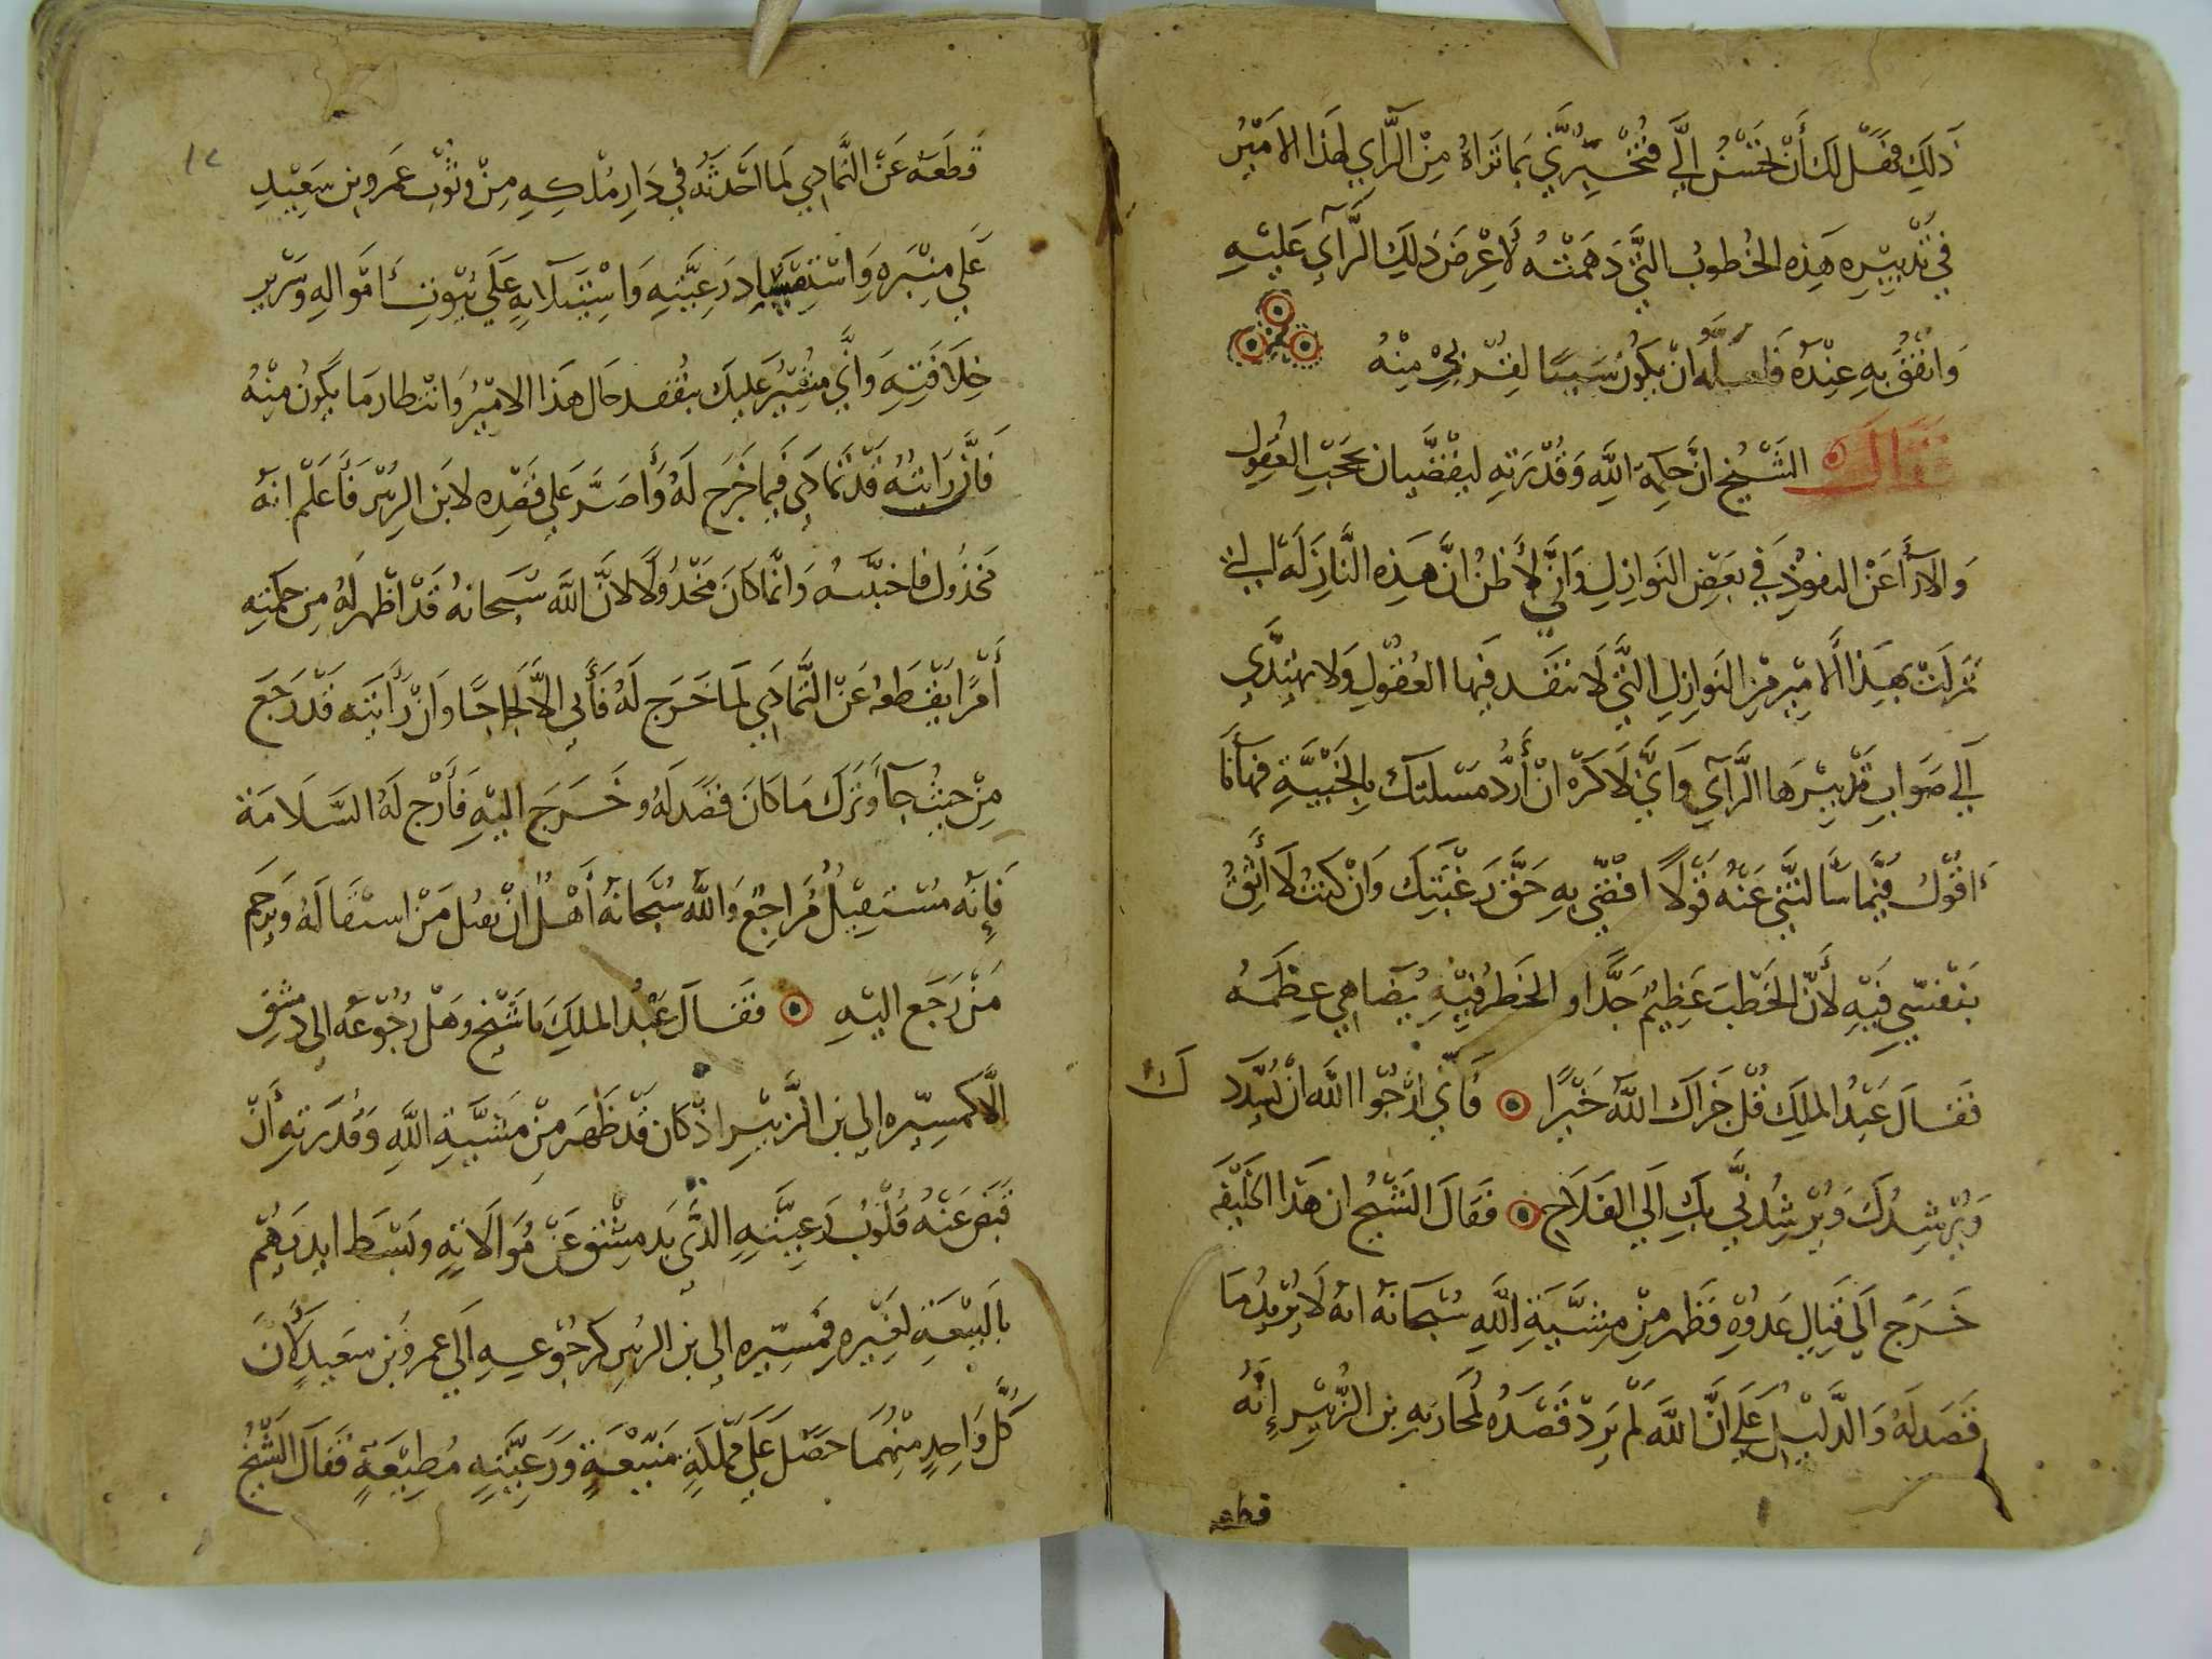 ذلك فهل لك أن تحسن إلي فتخبرني بما تراه من الرأي لهذا الامير
في تدبيره هذه الخطوب التي دهمته لأعرض ذلك الرأي عليه
وانفق به عنده فلعله ان يكون سببا لقربي منه
فقال الشيخ ان حكمة الله وقدرته ليقضيان بحجب العقول
والارآ عن النفوذ في بعض النوازل واني لأظن ان هذه النازلة التي
نزلت بهذا الامير من النوازل التي لا تنفد فيها العقول ولا يهتدي
الي صواب تدبيرها الرأي واني لاكره ان أرد مسلتك بالخيبة فها أنا
اقول فيما سألتني عنه قولا اقضي به حق رغبتك وان كنت لا أثق
بنفسي فيه لأن الخطب عظيم جدا و الخطر فيه يضاهي عظمه
فقال عبد الملك قل جزاك الله خيرا فاني ارجوا الله ان يسدد
ك
ويرشدك ويرشدني بك الي الفلاح فقال الشيخ ان هذا الخليفه
خرج الي قتال عدوه فظهر من مشية الله سبحانه انه لا يريد ما
قصد له والدليل علي ان الله لم يرد قصده لمحاربه بن الزبير انه
قطعه
١٢
قطعه عن التمادي لما احدثه في دار ملكه من وثوب عمرو بن سعيد
علي منبره واستفساد رعيته واستيلآيه علي بيوت امواله وسرير
خلافته واني مشير عليك بتفقد حال هذا الامير وانتظار ما يكون منه
فان رايته قد تمادي فيما خرج له وأصر علي قصده لابن الزبير فأعلم انه
مخذول فاجتنبه وانما كان مخذولا لان الله سبحانه قد اظهر له من حكمته
أمرا يقطعه عن التمادي لما خرج له فأبي الا لجاجا وان رايته قد رجع
من حيث جآ وترك ما كان قصد له وخرج اليه فأرج له السلامة
فإنه مستقيل مراجع والله سبحانه أهل ان يقيل من استقاله ويرحم
من رجع اليه فقال عبد الملك يا شيخ وهل رجوعه الي دمشق
الا كمسيره الي بن الزبير اذ كان قد ظهر من مشية الله وقدرته أن
قبض عنه قلوب رعيته الذي بدمشق عن موالاته وبسط ايديهم
بالبيعة لغيره فمسيره إلي بن الزبير كرجوعه الي عمرو بن سعيد لأن
كل واحد منهما حصل علي مملكة منيعة ورعيته مطيعة فقال الشيخ